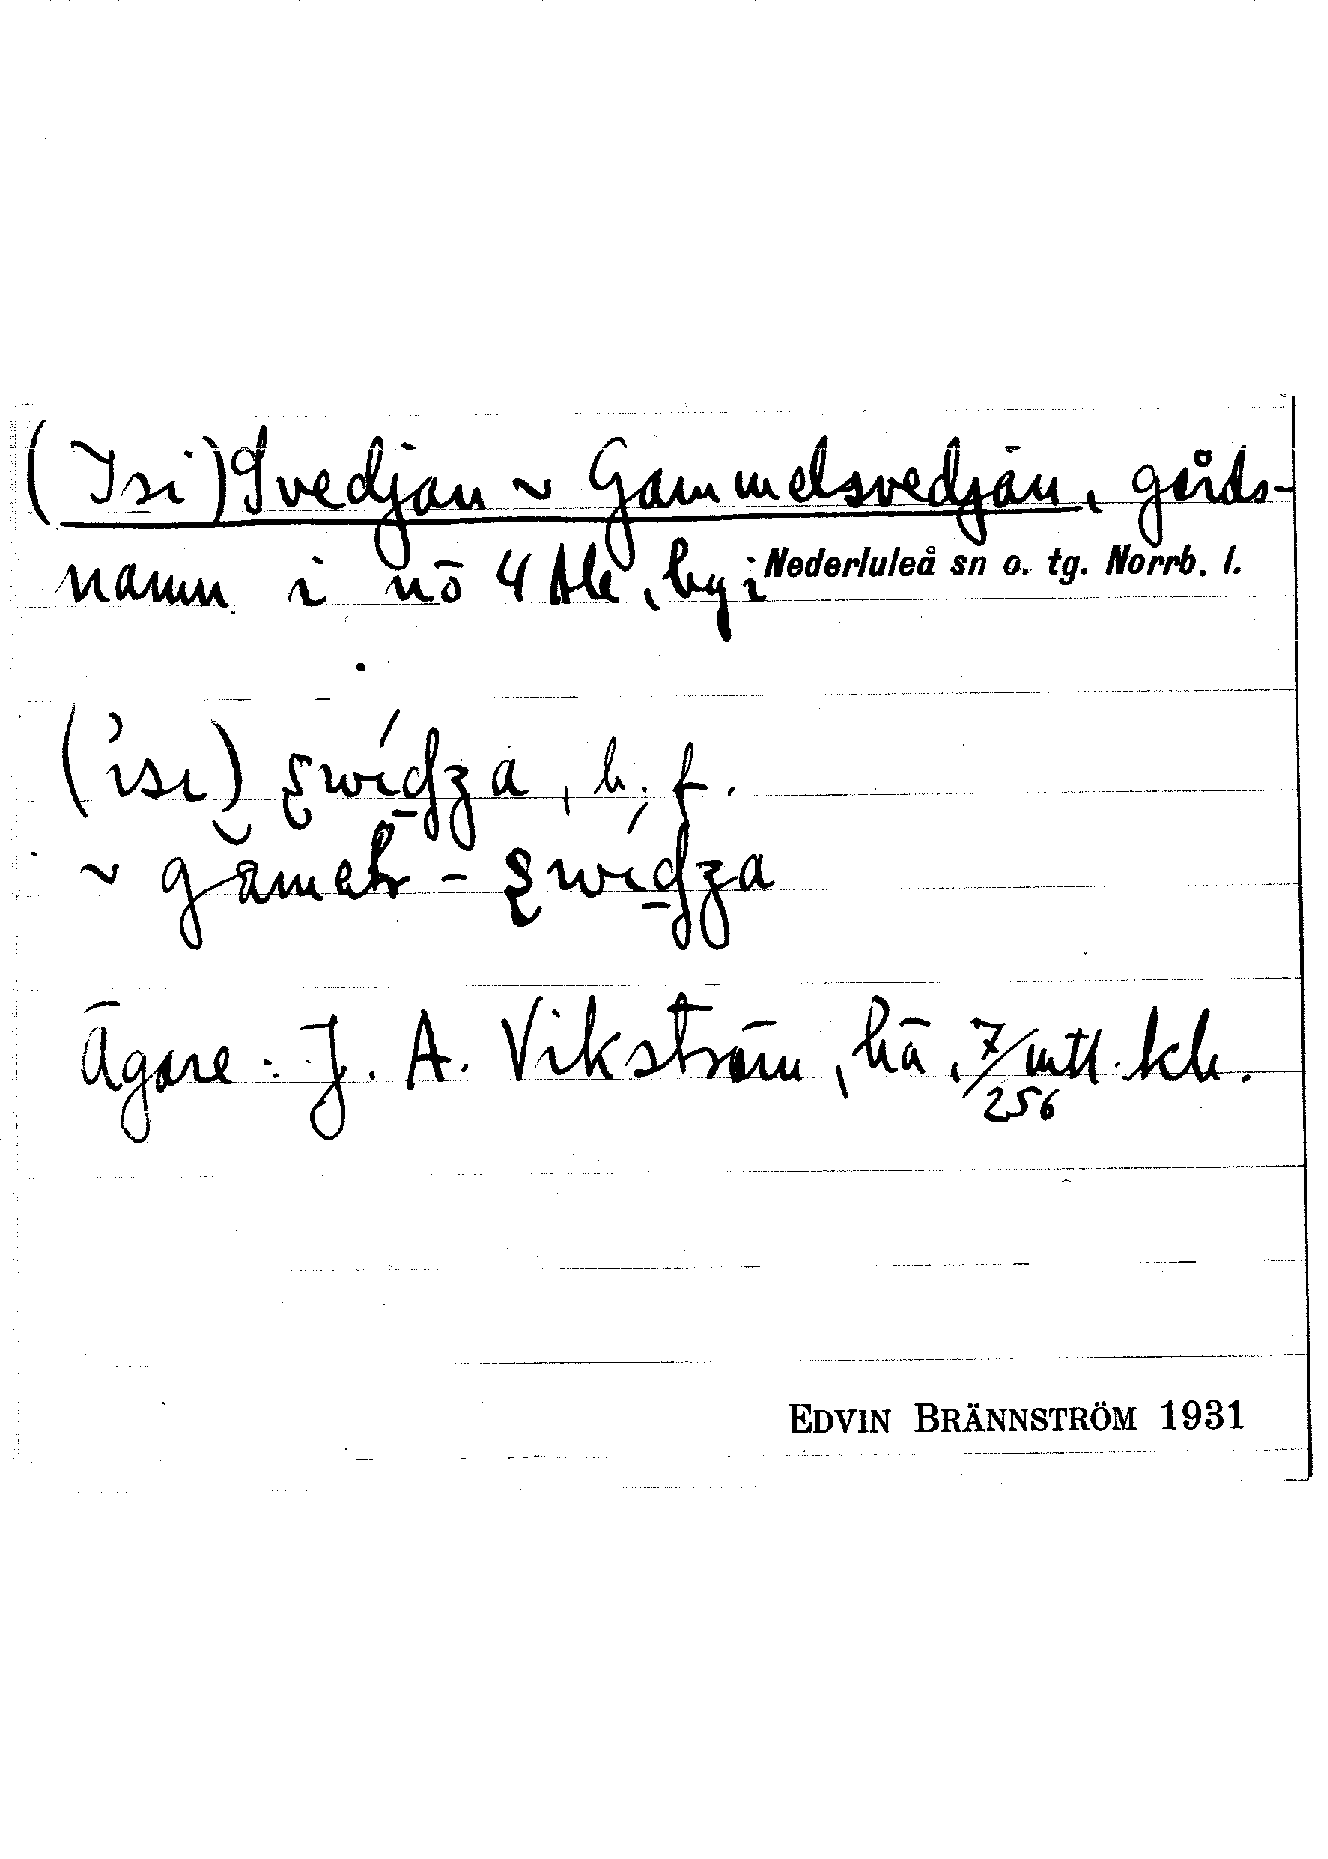 (Isi) Svedjan ~ Gammelsvedjan, gårds-
namn i nō 4 Ale, by i Nederluleå sn o. tg. Norrb. l.
b. f.
~
Ägare: J. A. Vikström, hā, 7/256 mtl. kh.
EDVIN BRÄNNSTRÖM 1931